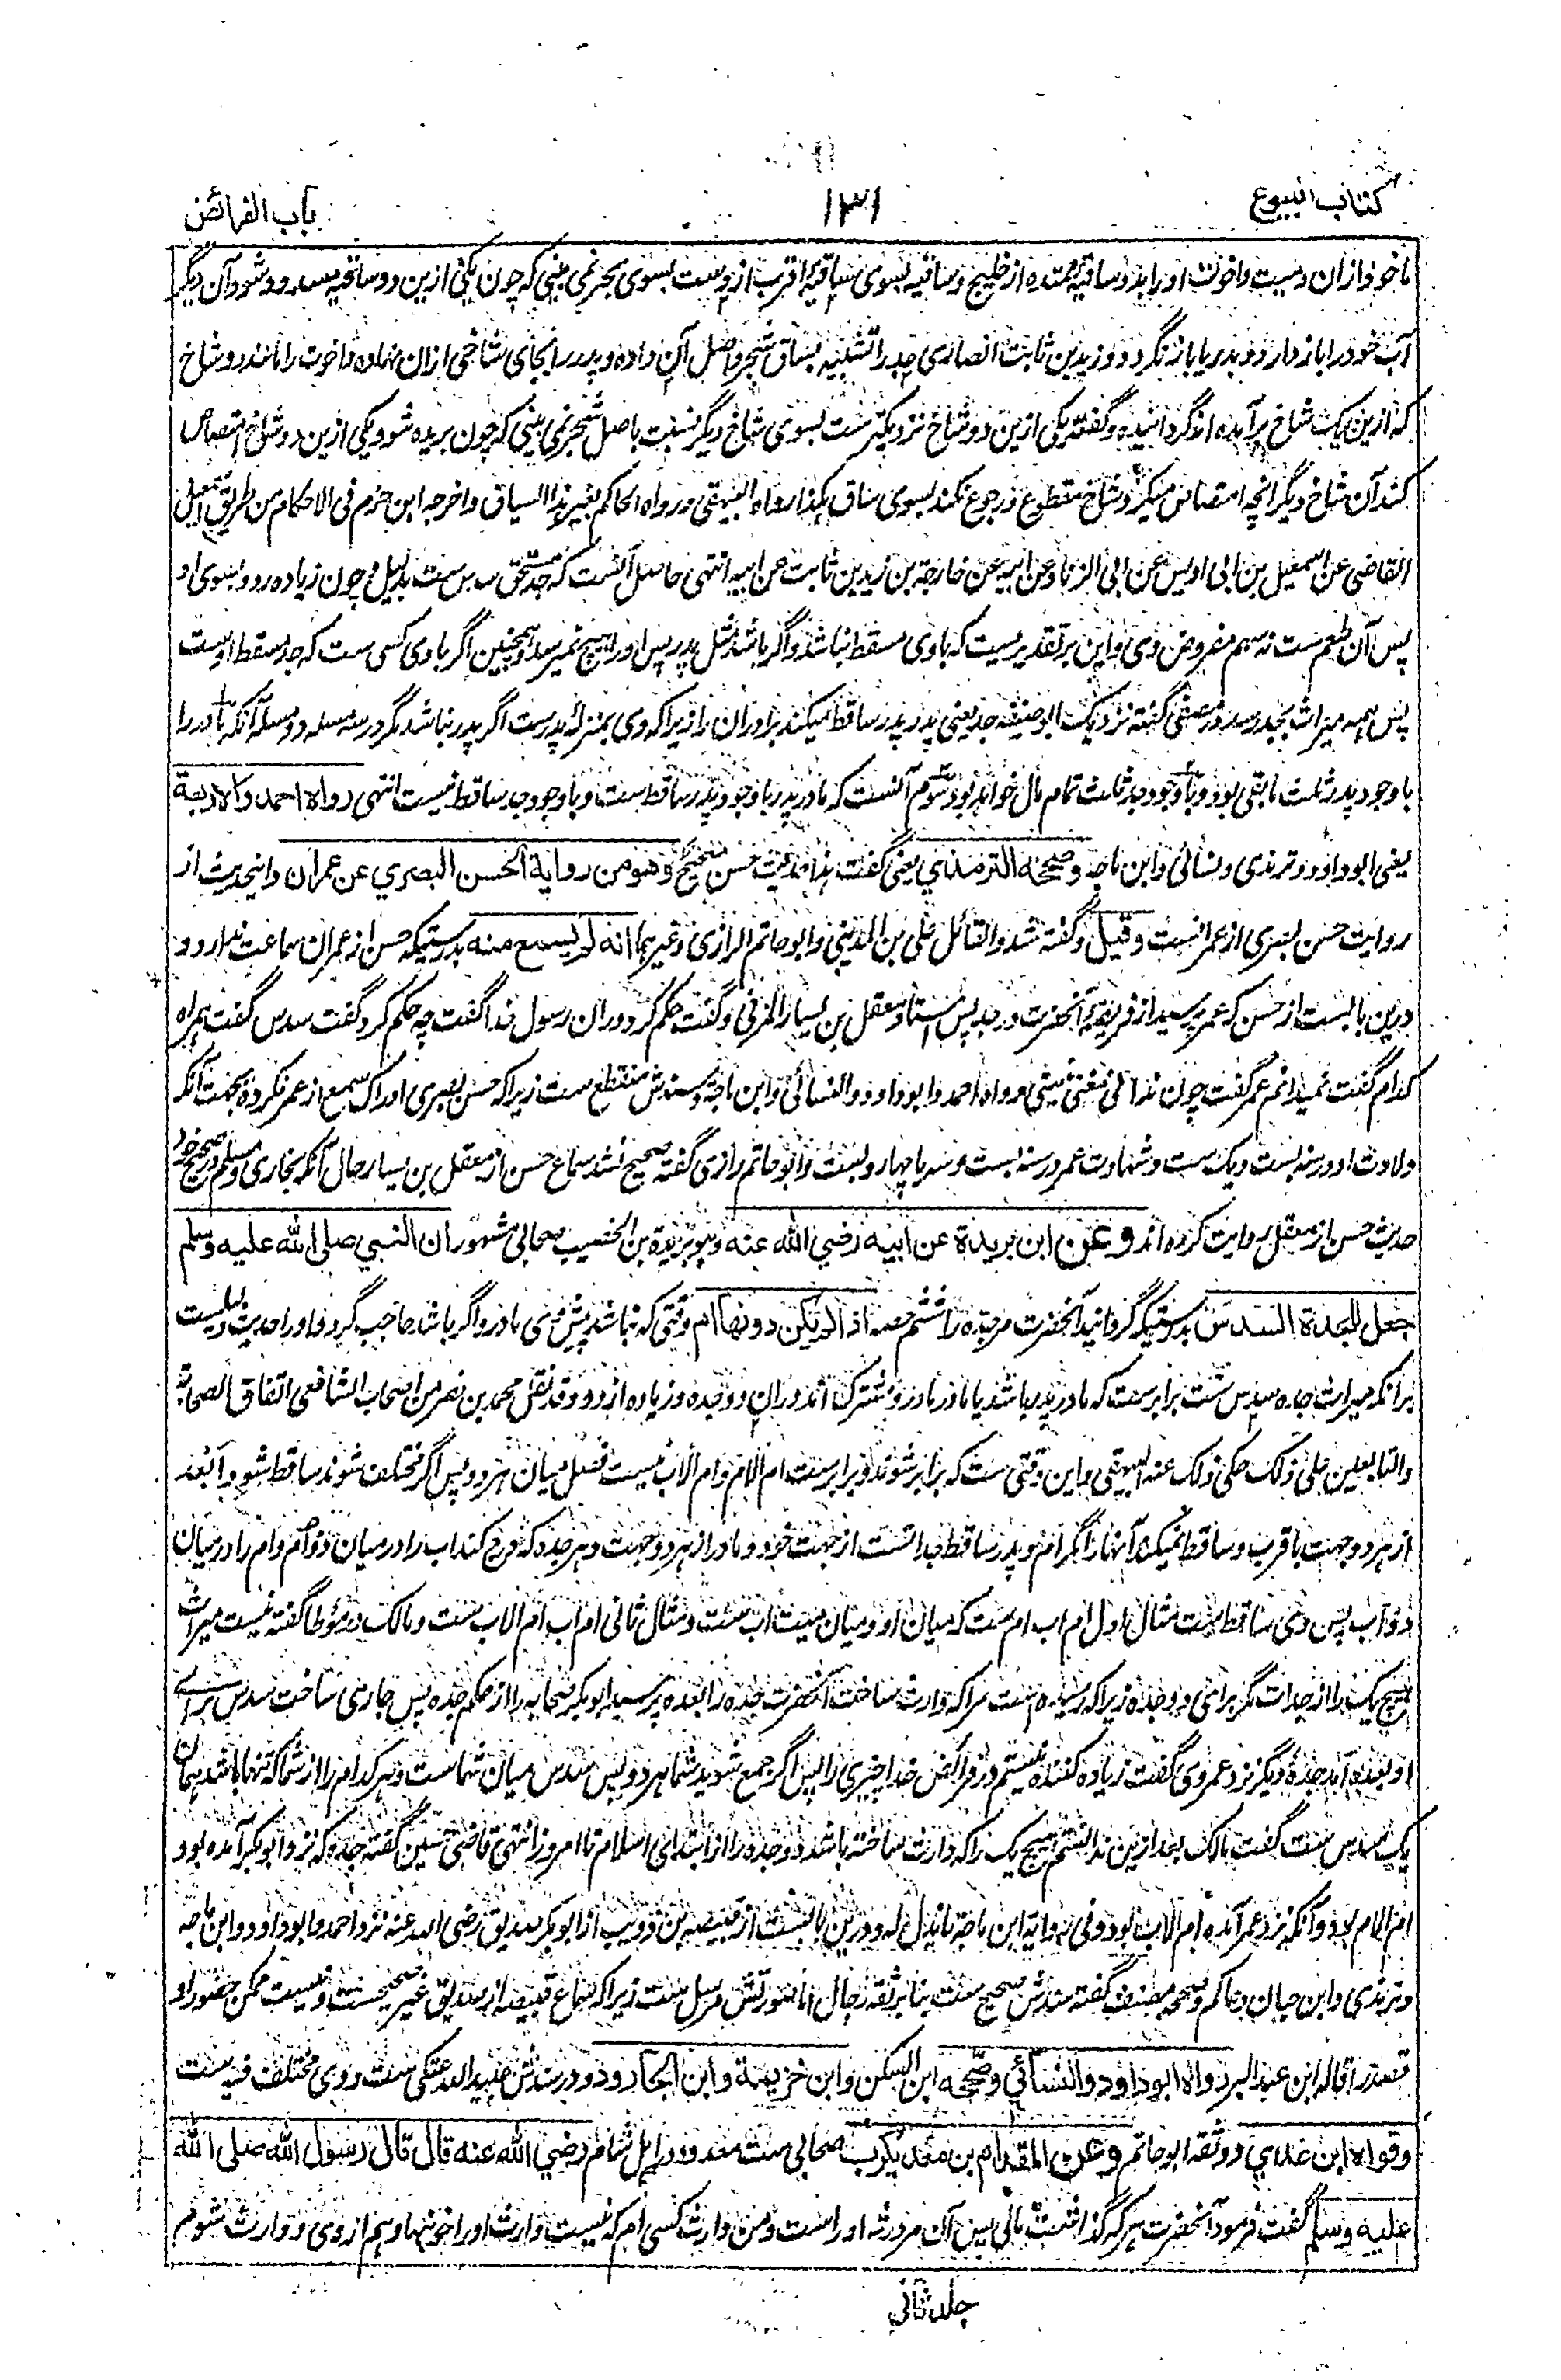 کتاب البیوع
۱۳۱
باب الفرائض
ماخوذ ازان و میت و اخوت او را بدو ساقیه ممتده از خلیج و ساقیه بسوی ساقیه اقرب از وست بسوی بحر نمی بینی که چون یکی ازین دو ساقیه مسدود شود آن دیگر
آب خود را باز دارد و بدریا باز نگردد و زید بن ثابت انصاری جد را تشبیه بساق شجر و اصل آن داده و پدر را بجای شاخی ازان نهاده و اخوت را مانند دو شاخ
که ازین یک شاخ برآمده اند گردانیده و گفته یکی ازین دو شاخ نزدیکتر ست بسوی شاخ دیگر نسبت باصل شجر نمی بینی که چون بریده شود یکی ازین دو شاخ امتصاص
کند آن شاخ دیگر انچه امتصاص میکرد شاخ مقطوع و رجوع نکند بسوی ساق هکذا رواه البیهقی و رواه الحاکم بغیر هذا السیاق و اخرجه ابن حزم فی الاحکام من طریق اسمعیل
القاضی عن اسمعیل بن ابی اویس عن ابی الزناد عن ابیه عن خارجة بن زید بن ثابت عن ابیه انتهی حاصل آنست که جد مستحق سدس ست بدلیل و چون زیاده رود بسوی او
پس آن طعمه ست نه سهم مفروض وی و این بر تقدیریست که باوی مسقط نباشد و اگر باشد مثل پدر پس او را هیچ نمیرسد و همچنین اگر باوی کسی ست که جد مسقط اوست
پس همه میراث بجد رسد و ز عشی گفته نزدیک ابو حنیفه جد یعنی پدر پدر ساقط میکند برادران را زیرا که وی بمنزله پدرست اگر پدر نباشد مگر در سه مسله دو مسله آنکه مادر را
با وجود پدر ثلث مابقی بود و با وجود جد ثلث تمام مال خواهد بود سوم آنست که مادر پدر با وجود پدر ساقط ست و با وجود جد ساقط نیست انتهی رواه احمد والاربعة
یعنی ابو داود و ترمذی و نسائی و ابن ماجه و صححه الترمذي یعنی گفت هذا حدیث حسن صحیح وهو من رواية الحسن البصري عن عمران و اینحدیث از
روایت حسن بصری از عمرانست وقیل و گفته شد و القائل علی بن المدینی و ابو حاتم الرازی و غیرهما انه لم یسمع منه بدرستیکه حسن از عمران سماعت ندارد و
درین بابست از حسن که عمر پرسید از فریضه آنحضرت در جد پس استاد معقل بن یسار المزنی و گفت حکم کرد دران رسول خدا گفت چه حکم کرد گفت سدس گفت همراه
کدام گفت نمیدانم عمر گفت چون ندانی نغنی شیئی و رواه احمد و ابو داود و النسائی و ابن ماجة و سندش منقطع ست زیرا که حسن بصری ادراک سمع از عمر نکرده بجهت آنکه
ولادت او در سنه بست و یک ست و شهادت عمر در سنه بست و سه یا چهار و بست و ابو حاتم رازی گفته صحیح نشد سماع حسن از معقل بن یسار حال آنکه بخاری و مسلم در صحیح خود
حدیث حسن از معقل روایت کرده اند وعن ابن بریدة عن ابیه رضي الله عنه و هو بریدة بن الحصیب صحابی مشهور ان النبي صلی الله علیه وسلم
جعل للجدة السدس بدرستیکه گردانید آنحضرت مر جده را ششم حصه اذا لم یکن دونها ام وقتی که نباشد پیش وی مادر و اگر باشد حاجب گردد او را حدیث دلیلست
برانکه میراث جده سدس ست برابرست که مادر پدر باشد یا مادر مادر و مشترک اند دران دو جده و زیاده از دو و قد نقل محمد بن نصر من اصحاب الشافعی اتفاق الصحابة
والتابعین علی ذلک حکی ذلک عنه البیهقی و این وقتی ست که برابر شوند و برابرست ام الام و ام الاب نیست فضل میان هر دو پس اگر مختلف شوند ساقط شود ابعد
از هر دو جهت باقرب و ساقط نمیکند آنها را مگر ام و پدر ساقط جداتست از جهت خود و مادر از هر دو جهت و هر جده که مدرج کند اب را در میان دو ام و ام را در میان
دو اب پس وی ساقط ست مثال اول ام اب ام ست که میان او و میان میت اب ست و مثال ثانی ام اب ام الاب ست و مالک در موطا گفته نیست میراث
هیچ یک را از جدات مگر برای دو جده زیرا که رسیده است مرا که وارث ساخت آنحضرت جده را بعده پرسید ابو بکر صحابه را از حکم جده پس جاری ساخت سدس برای
او بعده آمد جده دیگر نزد عمر وی گفت زیاده کننده نیستم در فرائض خدا چیزی را پس اگر جمع شوید شما هر دو پس سدس میان شماست و هر کدام را از شما که تنها باشد همان
یک سدس ست گفت مالک بعد ازین ندانستم هیچ یک را که وارث ساخته باشد دو جده را از ابتدای اسلام تا امروز انتهی قاضی حسین گفته جده که نزد ابو بکر آمده بود
ام الام بود و آنکه نزد عمر آمده ام الاب بود و فی روایة ابن ماجة ما یدل له و درین بابست از قبیصه بن ذویب از ابو بکر صدیق رضی الله عنه نزد احمد و ابو داود و ابن ماجه
و ترمذی و ابن حبان و حاکم و صححه مصنف گفته سندش صحیح ست بنا بر ثقه رجال اما صورتش مرسل ست زیرا که سماع قبیصه از صدیق غیر صحیحست و نیست ممکن حضور او
قصه را قاله ابن عبد البر رواه ابو داود والنسائي وصححه ابن السکن وابن خزیمة وابن الجارود و در سندش عبید الله عتکی ست و وی مختلف فیه ست
وقواه ابن عدي و وثقه ابو حاتم وعن المقدام بن معدیکرب صحابی ست معدود در اهل شام رضي الله عنه قال قال رسول الله صلی الله
علیه وسلم گفت فرمود آنحضرت هر که گذاشت مالی پس آن مر ورثه او راست و من وارث کسی ام که نیست وارث او را خونبها دهم از وی و وارث شوم
جلد ثانی